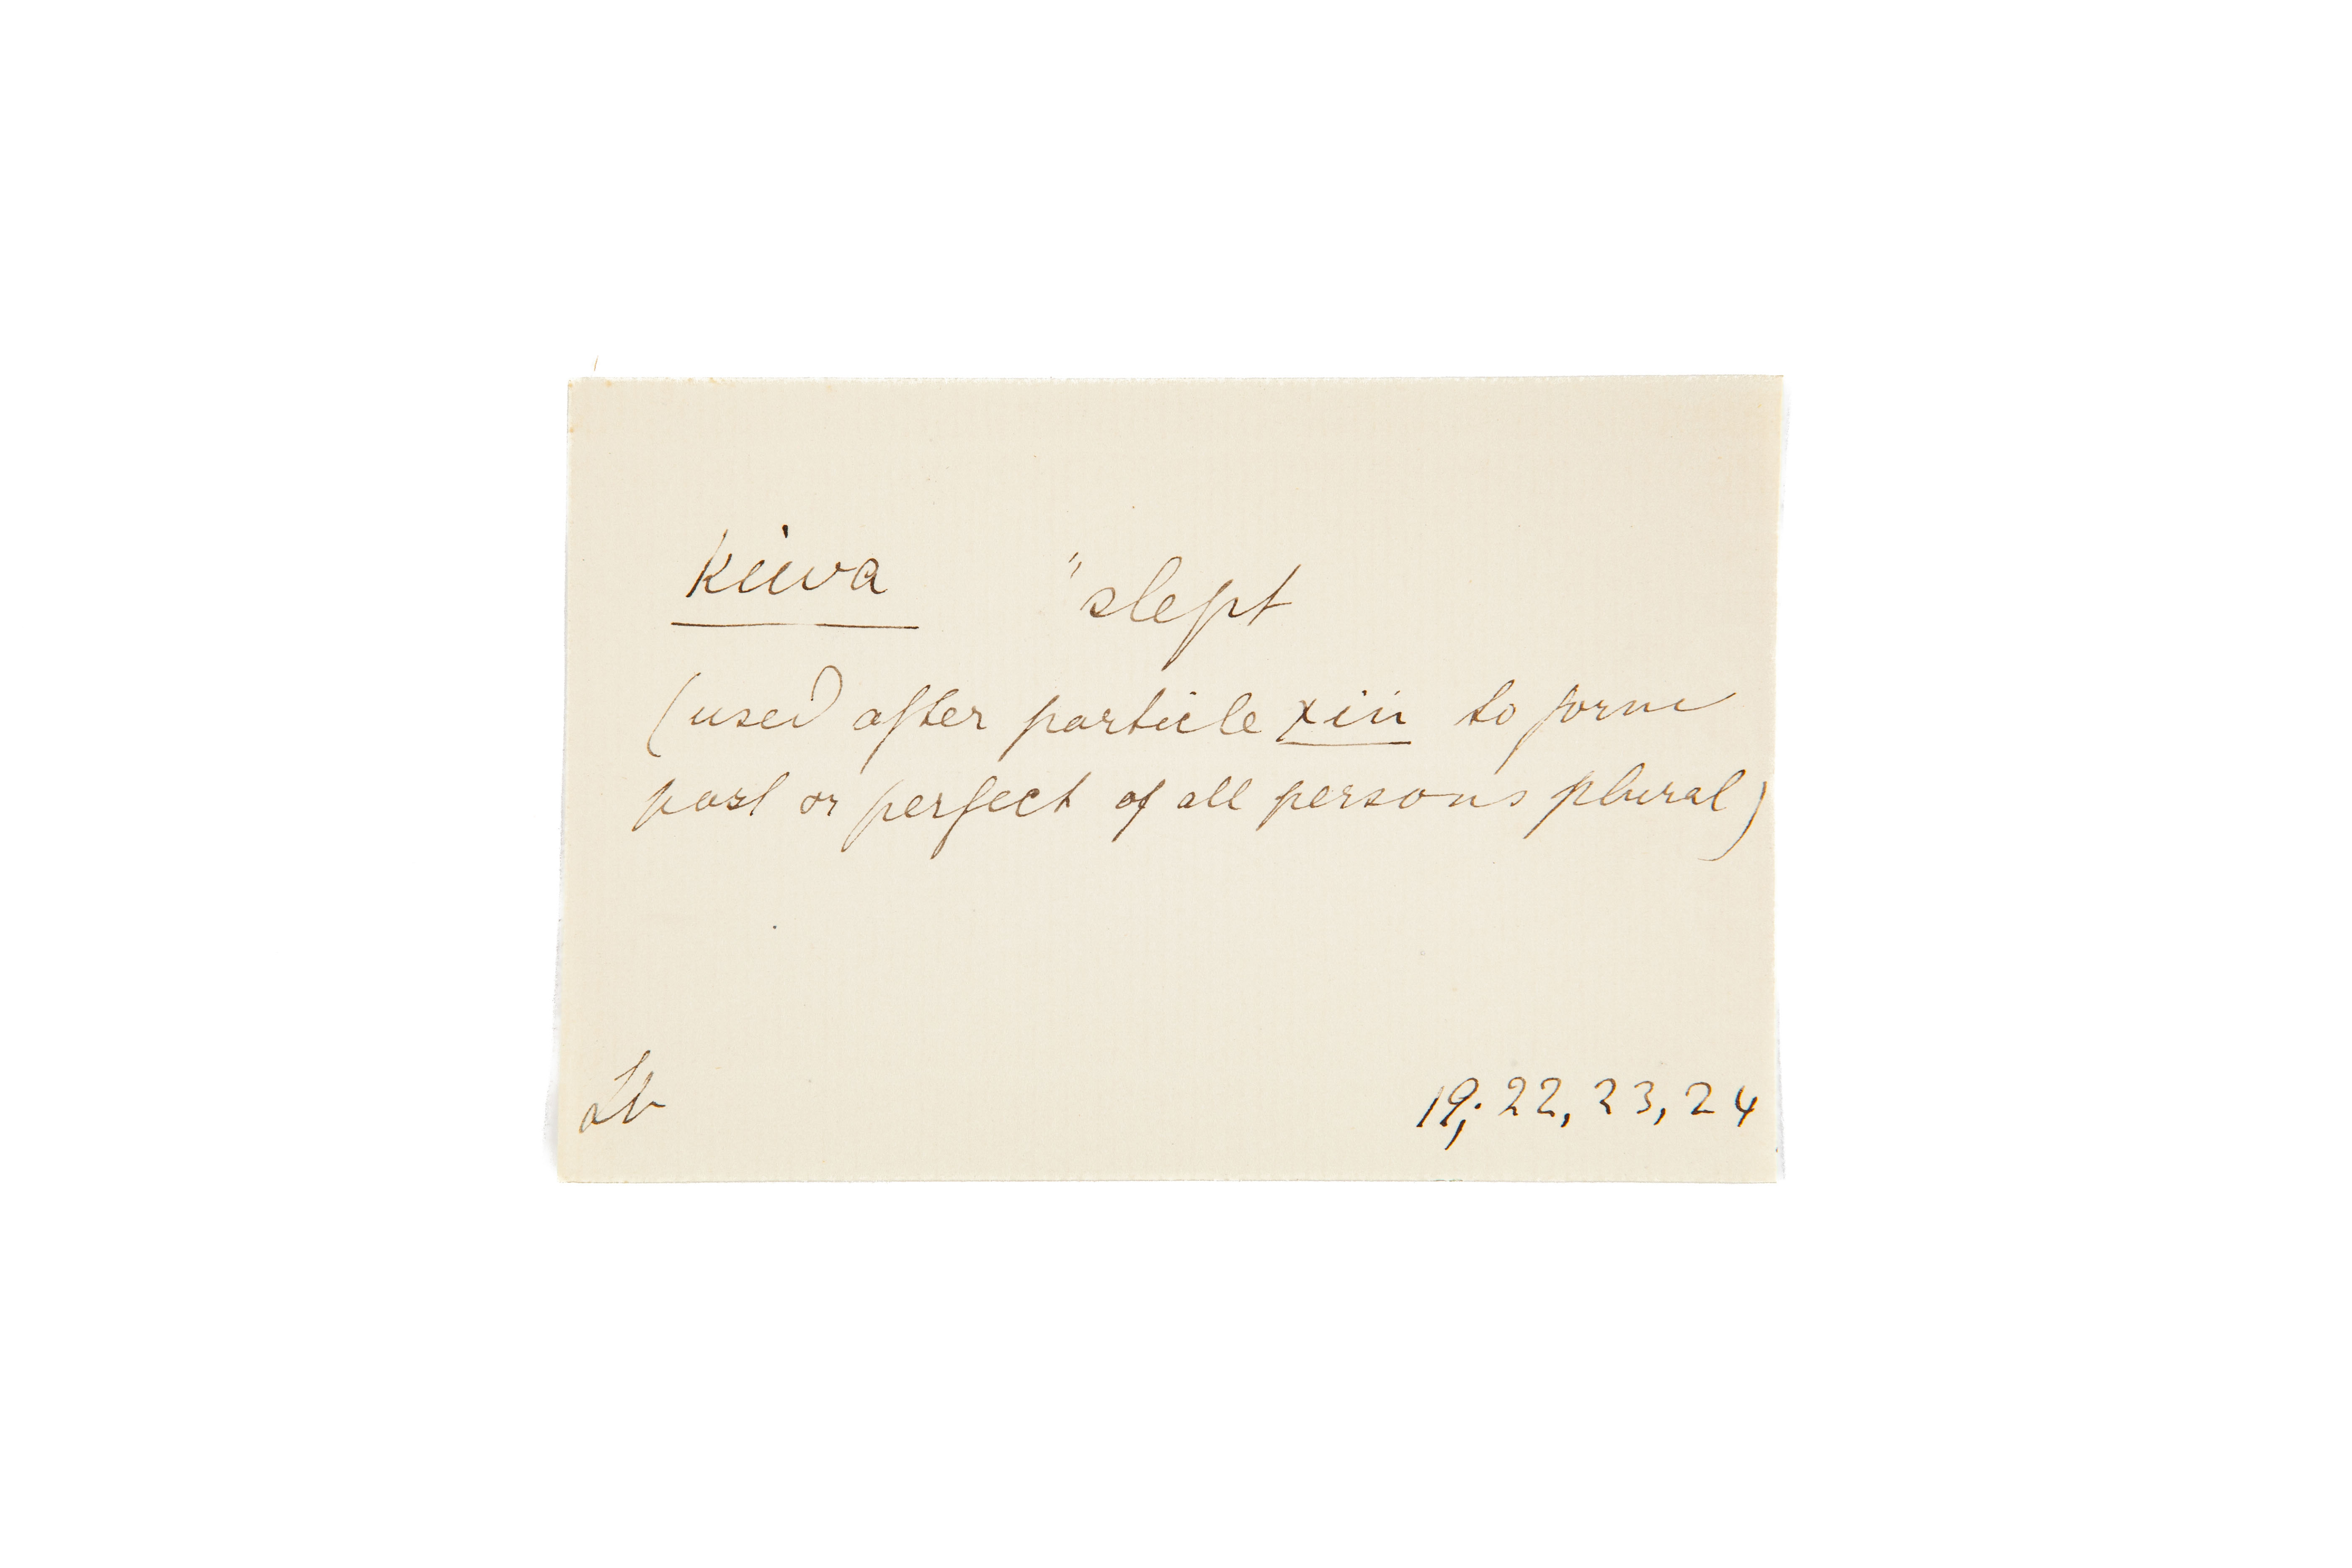 kiiva "slept
(used after particle xiii to form
past or perfect of all persons plural)
19; 22, 23, 24